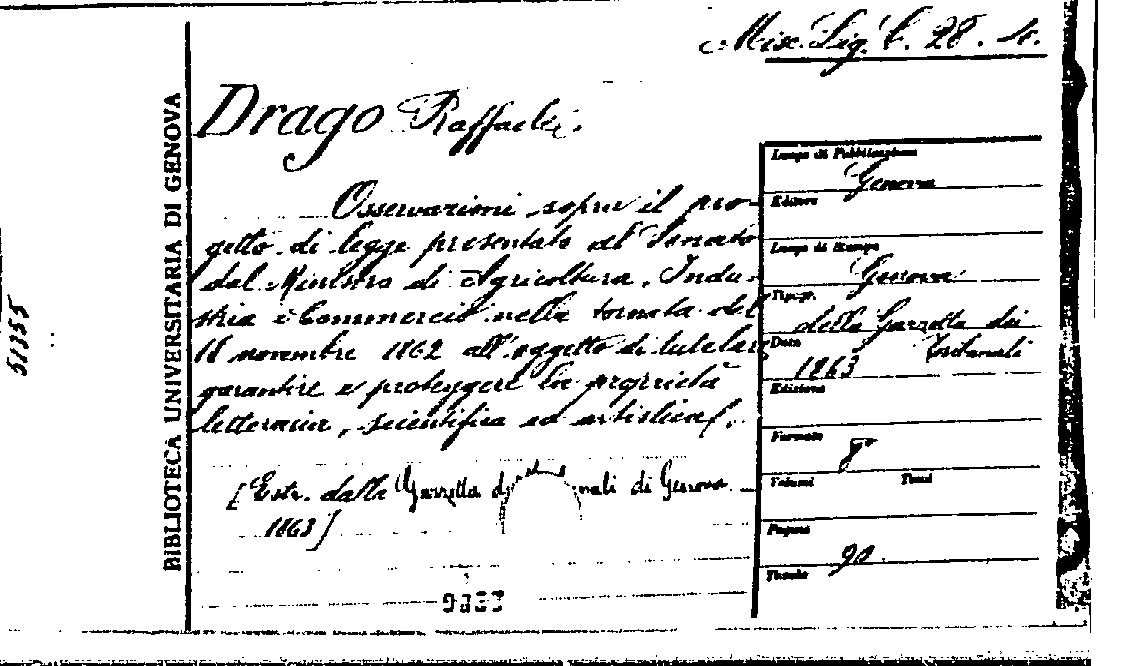 Misc. Lig. C. 28. 4.
BIBLIOTECA UNIVERSITARIA DI GENOVA
51355
Drago Raffaele.
Osservazioni sopra il pro-
getto di legge presentato al Senato
dal Ministro di Agricoltura, Indu-
stria e Commercio nella tornata del
18 novembre 1862 all'oggetto di tutelare
garantire e proteggere la proprietà
letteraria, scientifica ed artistica.
[Estr. dalla Gazzetta de nali di Genova
1863]
Luogo di Pubblicazione
Genova
Editore
Luogo di Stampa
Genova
Tipogr.
della Gazzetta dei
Tribunali
Data
1863
Edizione
Formato
8°
Volumi Tomi
Pagine
90
Tavole